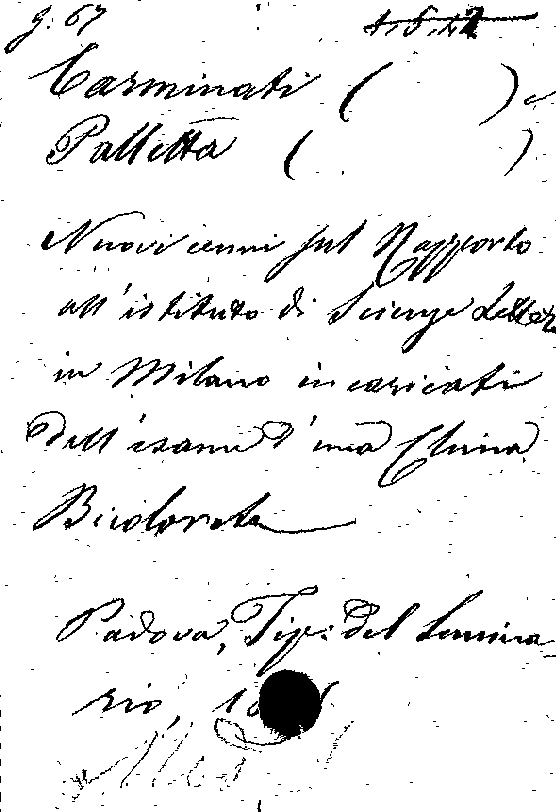 g. 67
Carminati ( ) e
Palletta ( )
Nuovi cenni sul Rapporto
all'istituto di Scienze Letter
in Milano incaricati
dell'esame d'una China
Bicolorata
Padova, Tip: del Semina
rio, 18